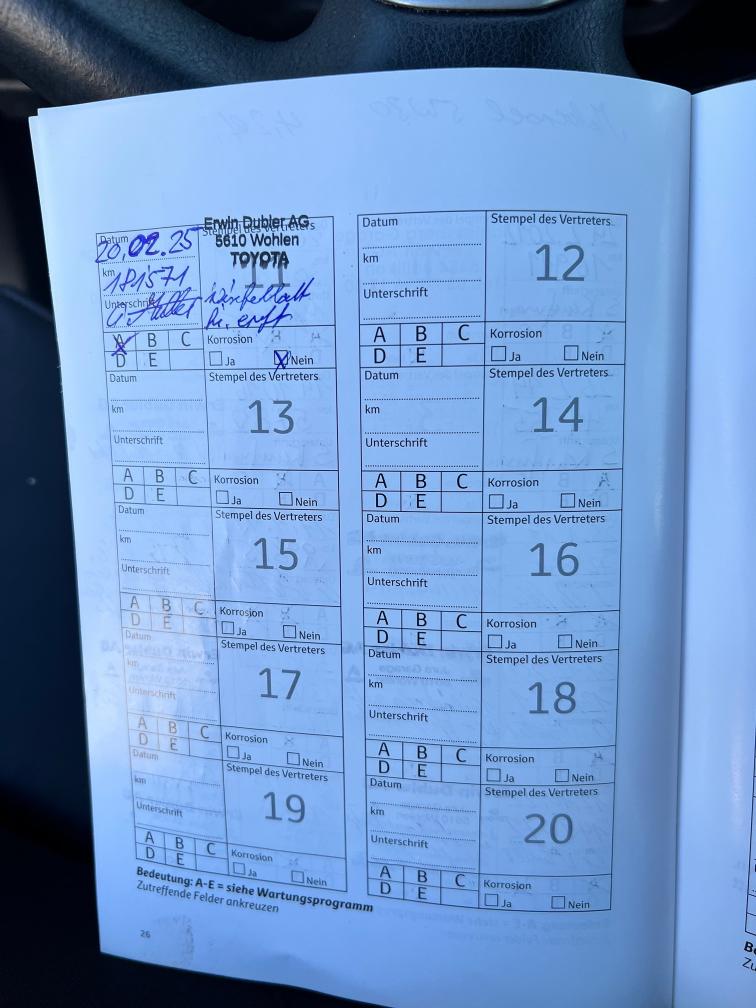 Datum
20.02.25
km
181571
Unterschrift
Stempel des Vertreters
Erwin Dubler AG
5610 Wohlen
TOYOTA
11
A B C
D E
Korrosion
Ja Nein
Datum
km
Unterschrift
Stempel des Vertreters
12
A B C
D E
Korrosion
Ja Nein
Datum
km
Unterschrift
Stempel des Vertreters
13
A B C
D E
Korrosion
Ja Nein
Datum
km
Unterschrift
Stempel des Vertreters
14
A B C
D E
Korrosion
Ja Nein
Datum
km
Unterschrift
Stempel des Vertreters
15
A B C
D E
Korrosion
Ja Nein
Datum
km
Unterschrift
Stempel des Vertreters
16
A B C
D E
Korrosion
Ja Nein
Datum
km
Unterschrift
Stempel des Vertreters
17
A B C
D E
Korrosion
Ja Nein
Datum
km
Unterschrift
Stempel des Vertreters
18
A B C
D E
Korrosion
Ja Nein
Datum
km
Unterschrift
Stempel des Vertreters
19
A B C
D E
Korrosion
Ja Nein
Datum
km
Unterschrift
Stempel des Vertreters
20
A B C
D E
Korrosion
Ja Nein
Bedeutung: A-E = siehe Wartungsprogramm
Zutreffende Felder ankreuzen
26